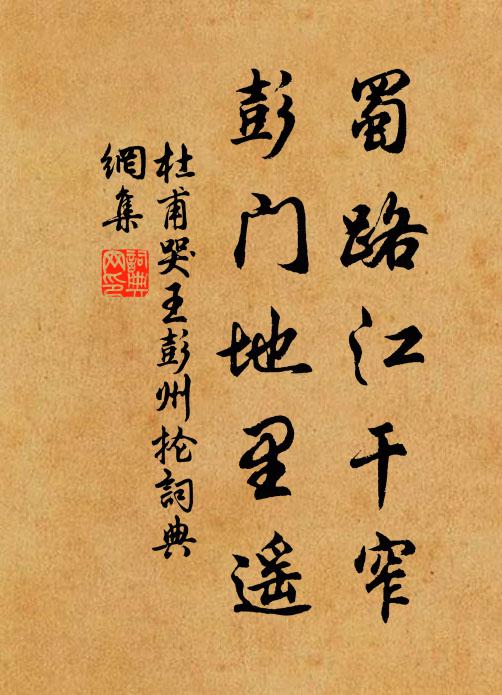 蜀路江干窄
彭门地里遥
杜甫哭王彭州抡詞典
網集
詞典网印